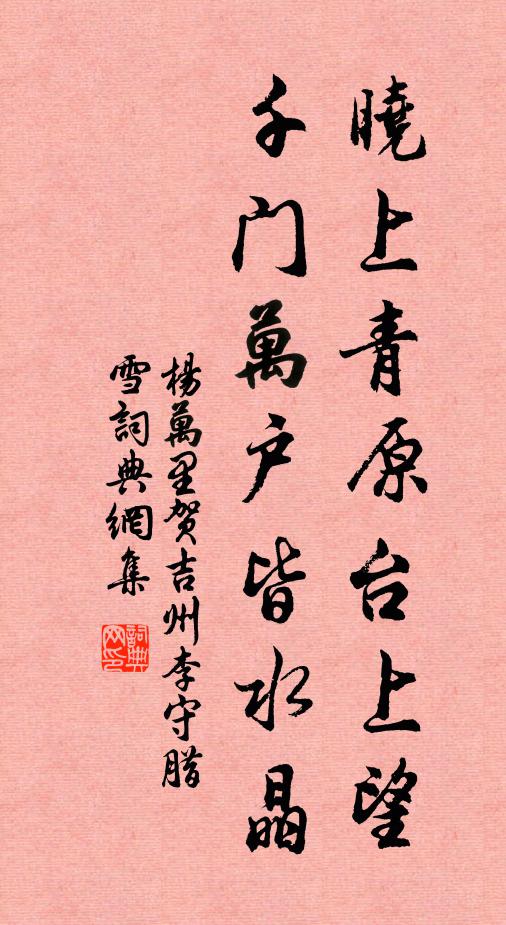 曉上青原台上望
千门萬户皆水晶
楊萬里贺吉州李守腊
雪詞典網集
詞典
网印